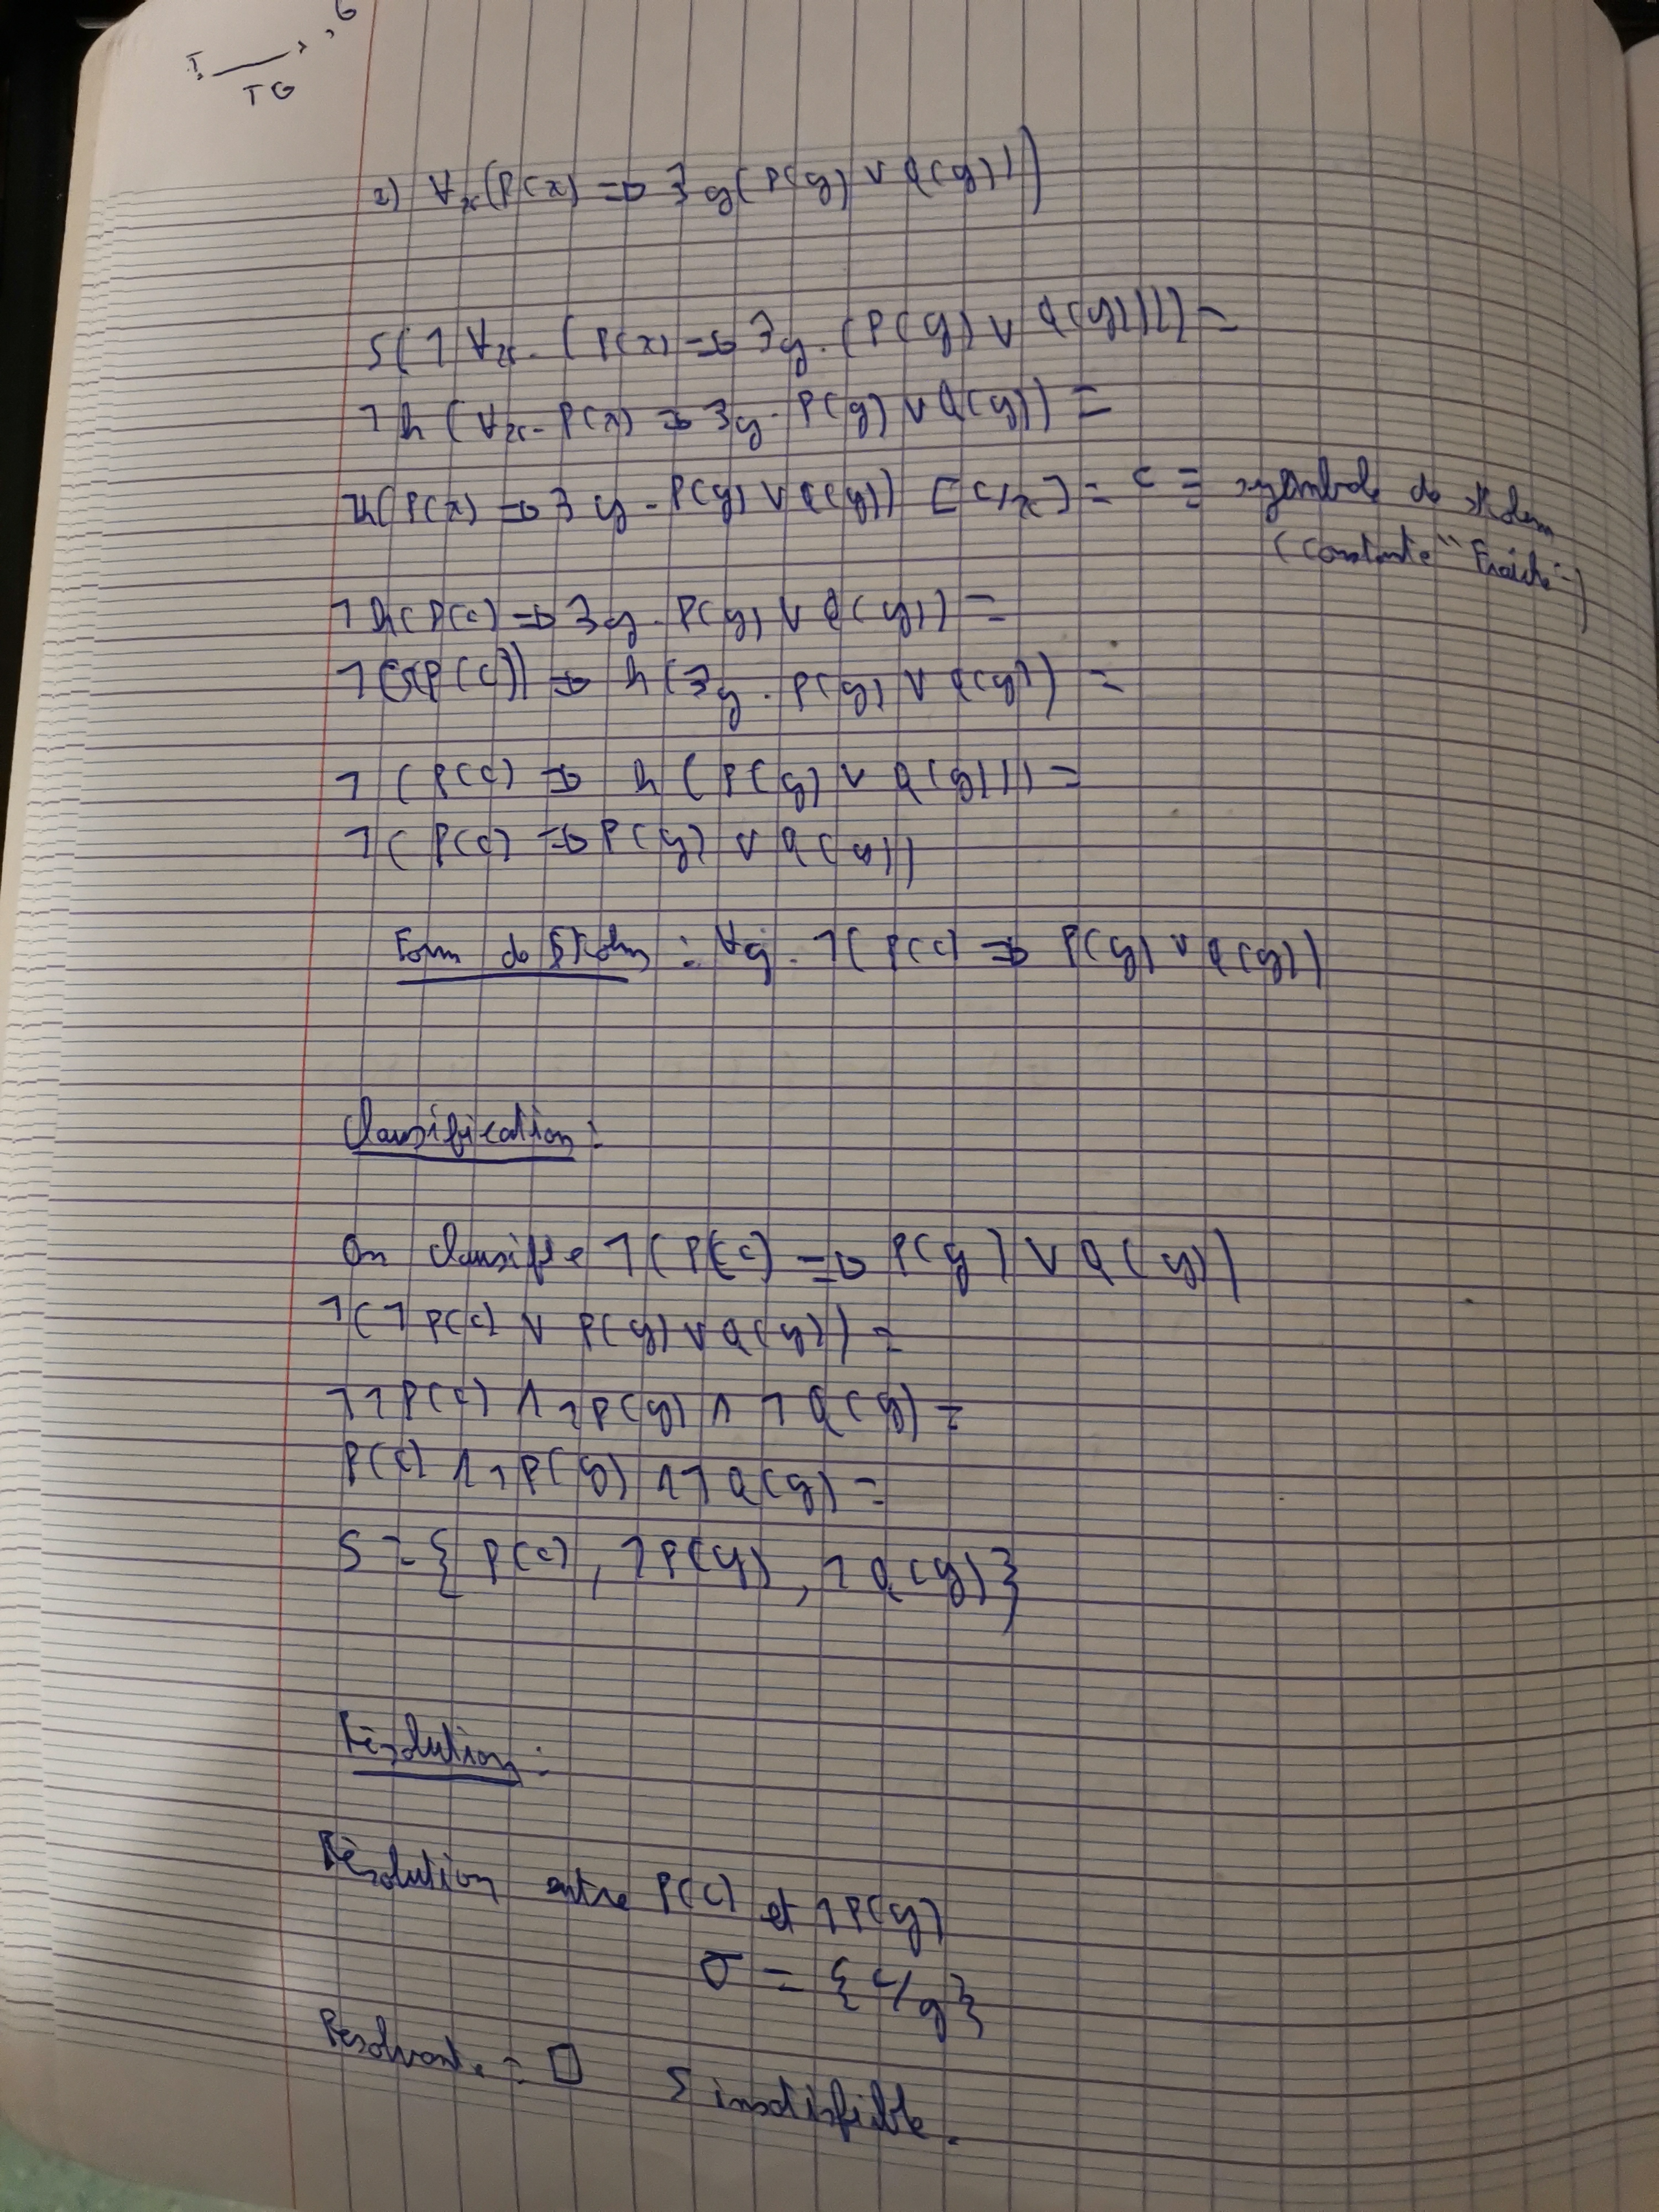 I → , G
TG
2) ∀x(P(x) => ∃y(P(y) ∨ Q(y)))
s(¬∀x.(P(x) => ∃y.(P(y) ∨ Q(y)))) =
¬h(∀x.P(x) => ∃y.P(y) ∨ Q(y)) =
¬h(P(x) => ∃y.P(y) ∨ Q(y)) [c/x] = c ≡ symbole de skolem
(constante "Fraîche")
¬h(P(c) => ∃y.P(y) ∨ Q(y)) =
¬(s(P(c)) => h(∃y.P(y) ∨ Q(y)) =
¬(P(c) => h(P(y) ∨ Q(y))) =
¬(P(c) => P(y) ∨ Q(y))
Form de Skolem : ∀y.¬(P(c) => P(y) ∨ Q(y))
Clausification :
On clausifie ¬(P(c) => P(y) ∨ Q(y))
¬(¬P(c) ∨ P(y) ∨ Q(y)) =
¬¬P(c) ∧ ¬P(y) ∧ ¬Q(y) =
P(c) ∧ ¬P(y) ∧ ¬Q(y) =
S = { P(c), ¬P(y), ¬Q(y) }
Résolution :
Résolution entre P(c) et ¬P(y)
σ = {c/y}
Résolvante : □ S insatisfiable.